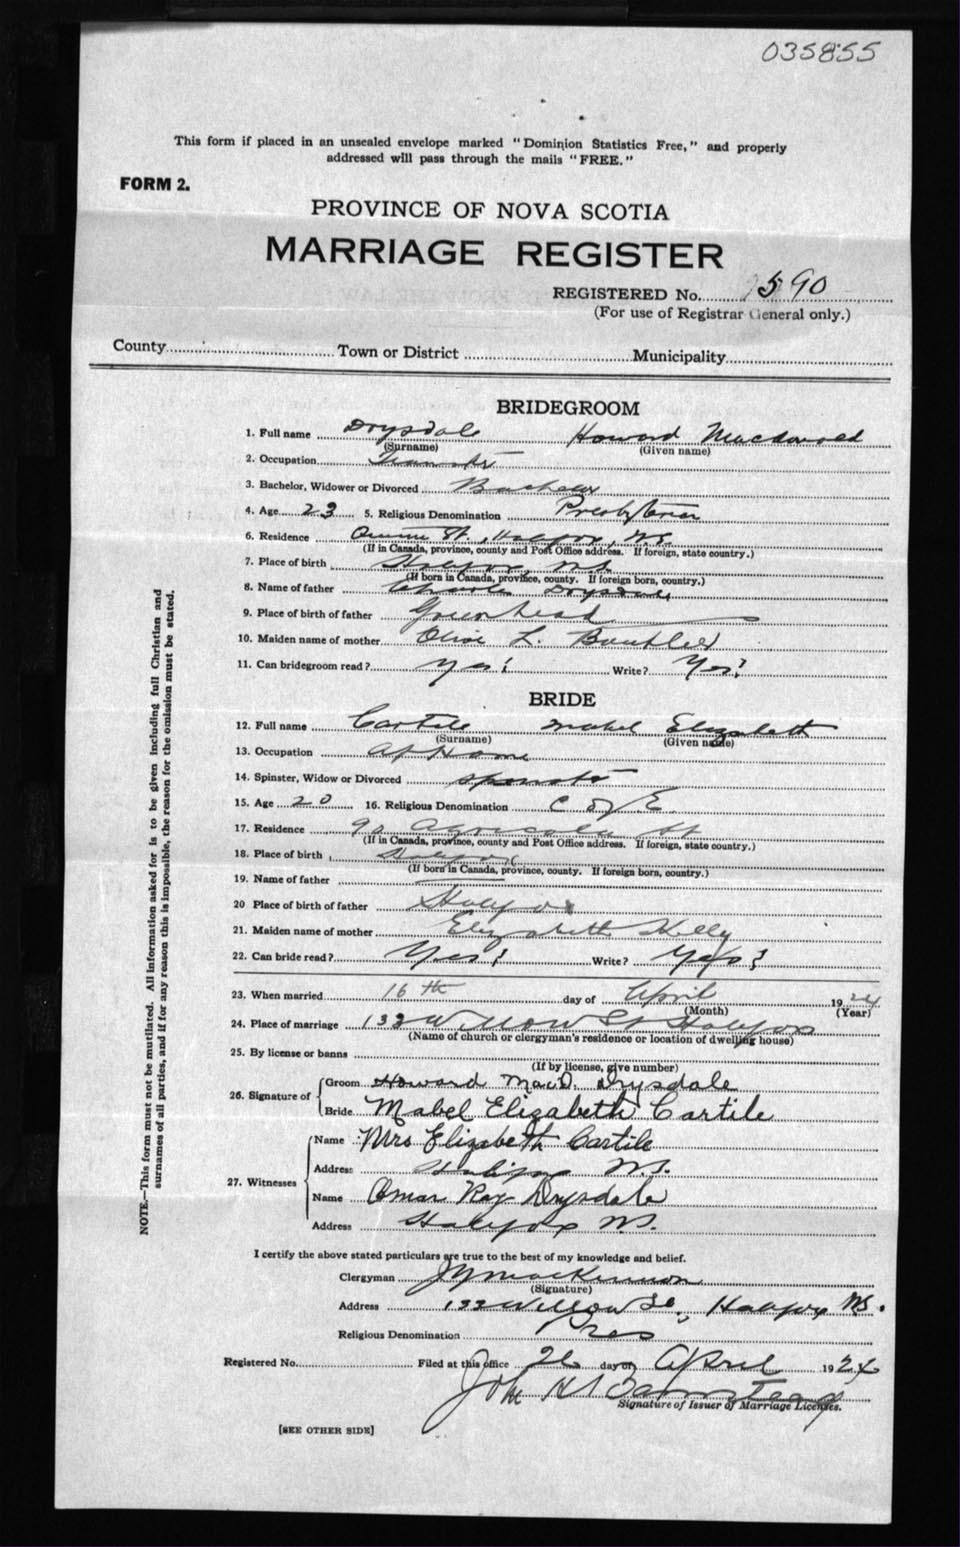 035855
This form if placed in an unsealed envelope marked "Dominion Statistics Free," and properly
addressed will pass through the mails "FREE."
FORM 2.
PROVINCE OF NOVA SCOTIA
MARRIAGE REGISTER
REGISTERED No. 590
(For use of Registrar General only.)
County Town or District Municipality
BRIDEGROOM
1. Full name Drysdale Howard Macdonald
(Surname) (Given name)
2. Occupation Teamster
3. Bachelor, Widower or Divorced Bachelor
4. Age 23 5. Religious Denomination Presbyterian
6. Residence St, Halifax, N.S.
(If in Canada, province, county and Post Office address. If foreign, state country.)
7. Place of birth Halifax, N.S.
(If born in Canada, province, county. If foreign born, country.)
8. Name of father Charles Drysdale
9. Place of birth of father Greenhead
10. Maiden name of mother Olive L.
11. Can bridegroom read? Yes! Write? Yes!
BRIDE
12. Full name Cartile Mabel Elizabeth
(Surname) (Given name)
13. Occupation At Home
14. Spinster, Widow or Divorced Spinster
15. Age 20 16. Religious Denomination C of E
17. Residence Agricola St
(If in Canada, province, county and Post Office address. If foreign, state country.)
18. Place of birth Halifax
(If born in Canada, province, county. If foreign born, country.)
19. Name of father
20 Place of birth of father Halifax
21. Maiden name of mother Elizabeth Kelly
22. Can bride read? Yes! Write? Yes!
23. When married 16th day of April 1924
(Month) (Year)
24. Place of marriage 133 Willow St Halifax
(Name of church or clergyman's residence or location of dwelling house)
25. By license or banns
(If by license, give number)
26. Signature of Groom Howard MacD. Drysdale
Bride Mabel Elizabeth Cartile
27. Witnesses Name Mrs Elizabeth Cartile
Address Halifax N.S.
Name Omar Ray Drysdale
Address Halifax N.S.
I certify the above stated particulars are true to the best of my knowledge and belief.
Clergyman MacKinnon
(Signature)
Address 133 Willow St, Halifax N.S.
Religious Denomination Pres
Registered No. Filed at this office 26 day of April 1924
John H
Signature of Issuer of Marriage Licenses.
[SEE OTHER SIDE]
NOTE.—This form must not be mutilated. All information asked for is to be given including full Christian and
surnames of all parties, and if for any reason this is impossible, the reason for the omission must be stated.